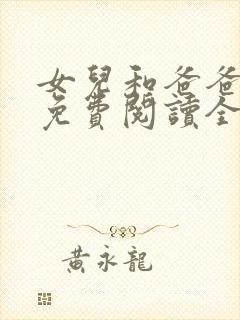 女兒和爸爸
免費閱讀全
黃永龍